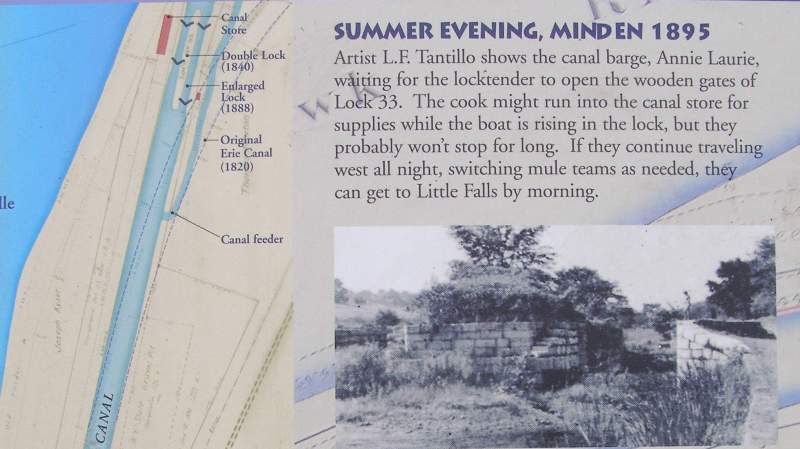 Canal
Store
Double Lock
(1840)
Enlarged
Lock
(1888)
Original
Erie Canal
(1820)
Canal feeder
CANAL
lle
Joseph Keyser
SUMMER EVENING, MINDEN 1895
Artist L.F. Tantillo shows the canal barge, Annie Laurie,
waiting for the locktender to open the wooden gates of
Lock 33. The cook might run into the canal store for
supplies while the boat is rising in the lock, but they
probably won't stop for long. If they continue traveling
west all night, switching mule teams as needed, they
can get to Little Falls by morning.